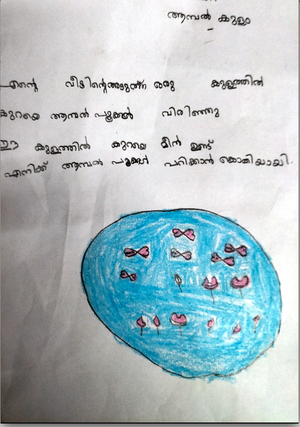 ആമ്പൽ കുളം
എന്റെ വീഴിന്റെതടുത്ത് ഒരു കുളത്തിൽ
കുറയെ ആമ്പൽ പൂങ്ങൾ വിരിഞ്ഞു
ഈ കുളത്തിൽ കുറയെ മീൻ ഉണ്ട്
എനിക്ക് ആമ്പൽ പൂങ്ങൾ പറിക്കാൻ കൊതിയായി.